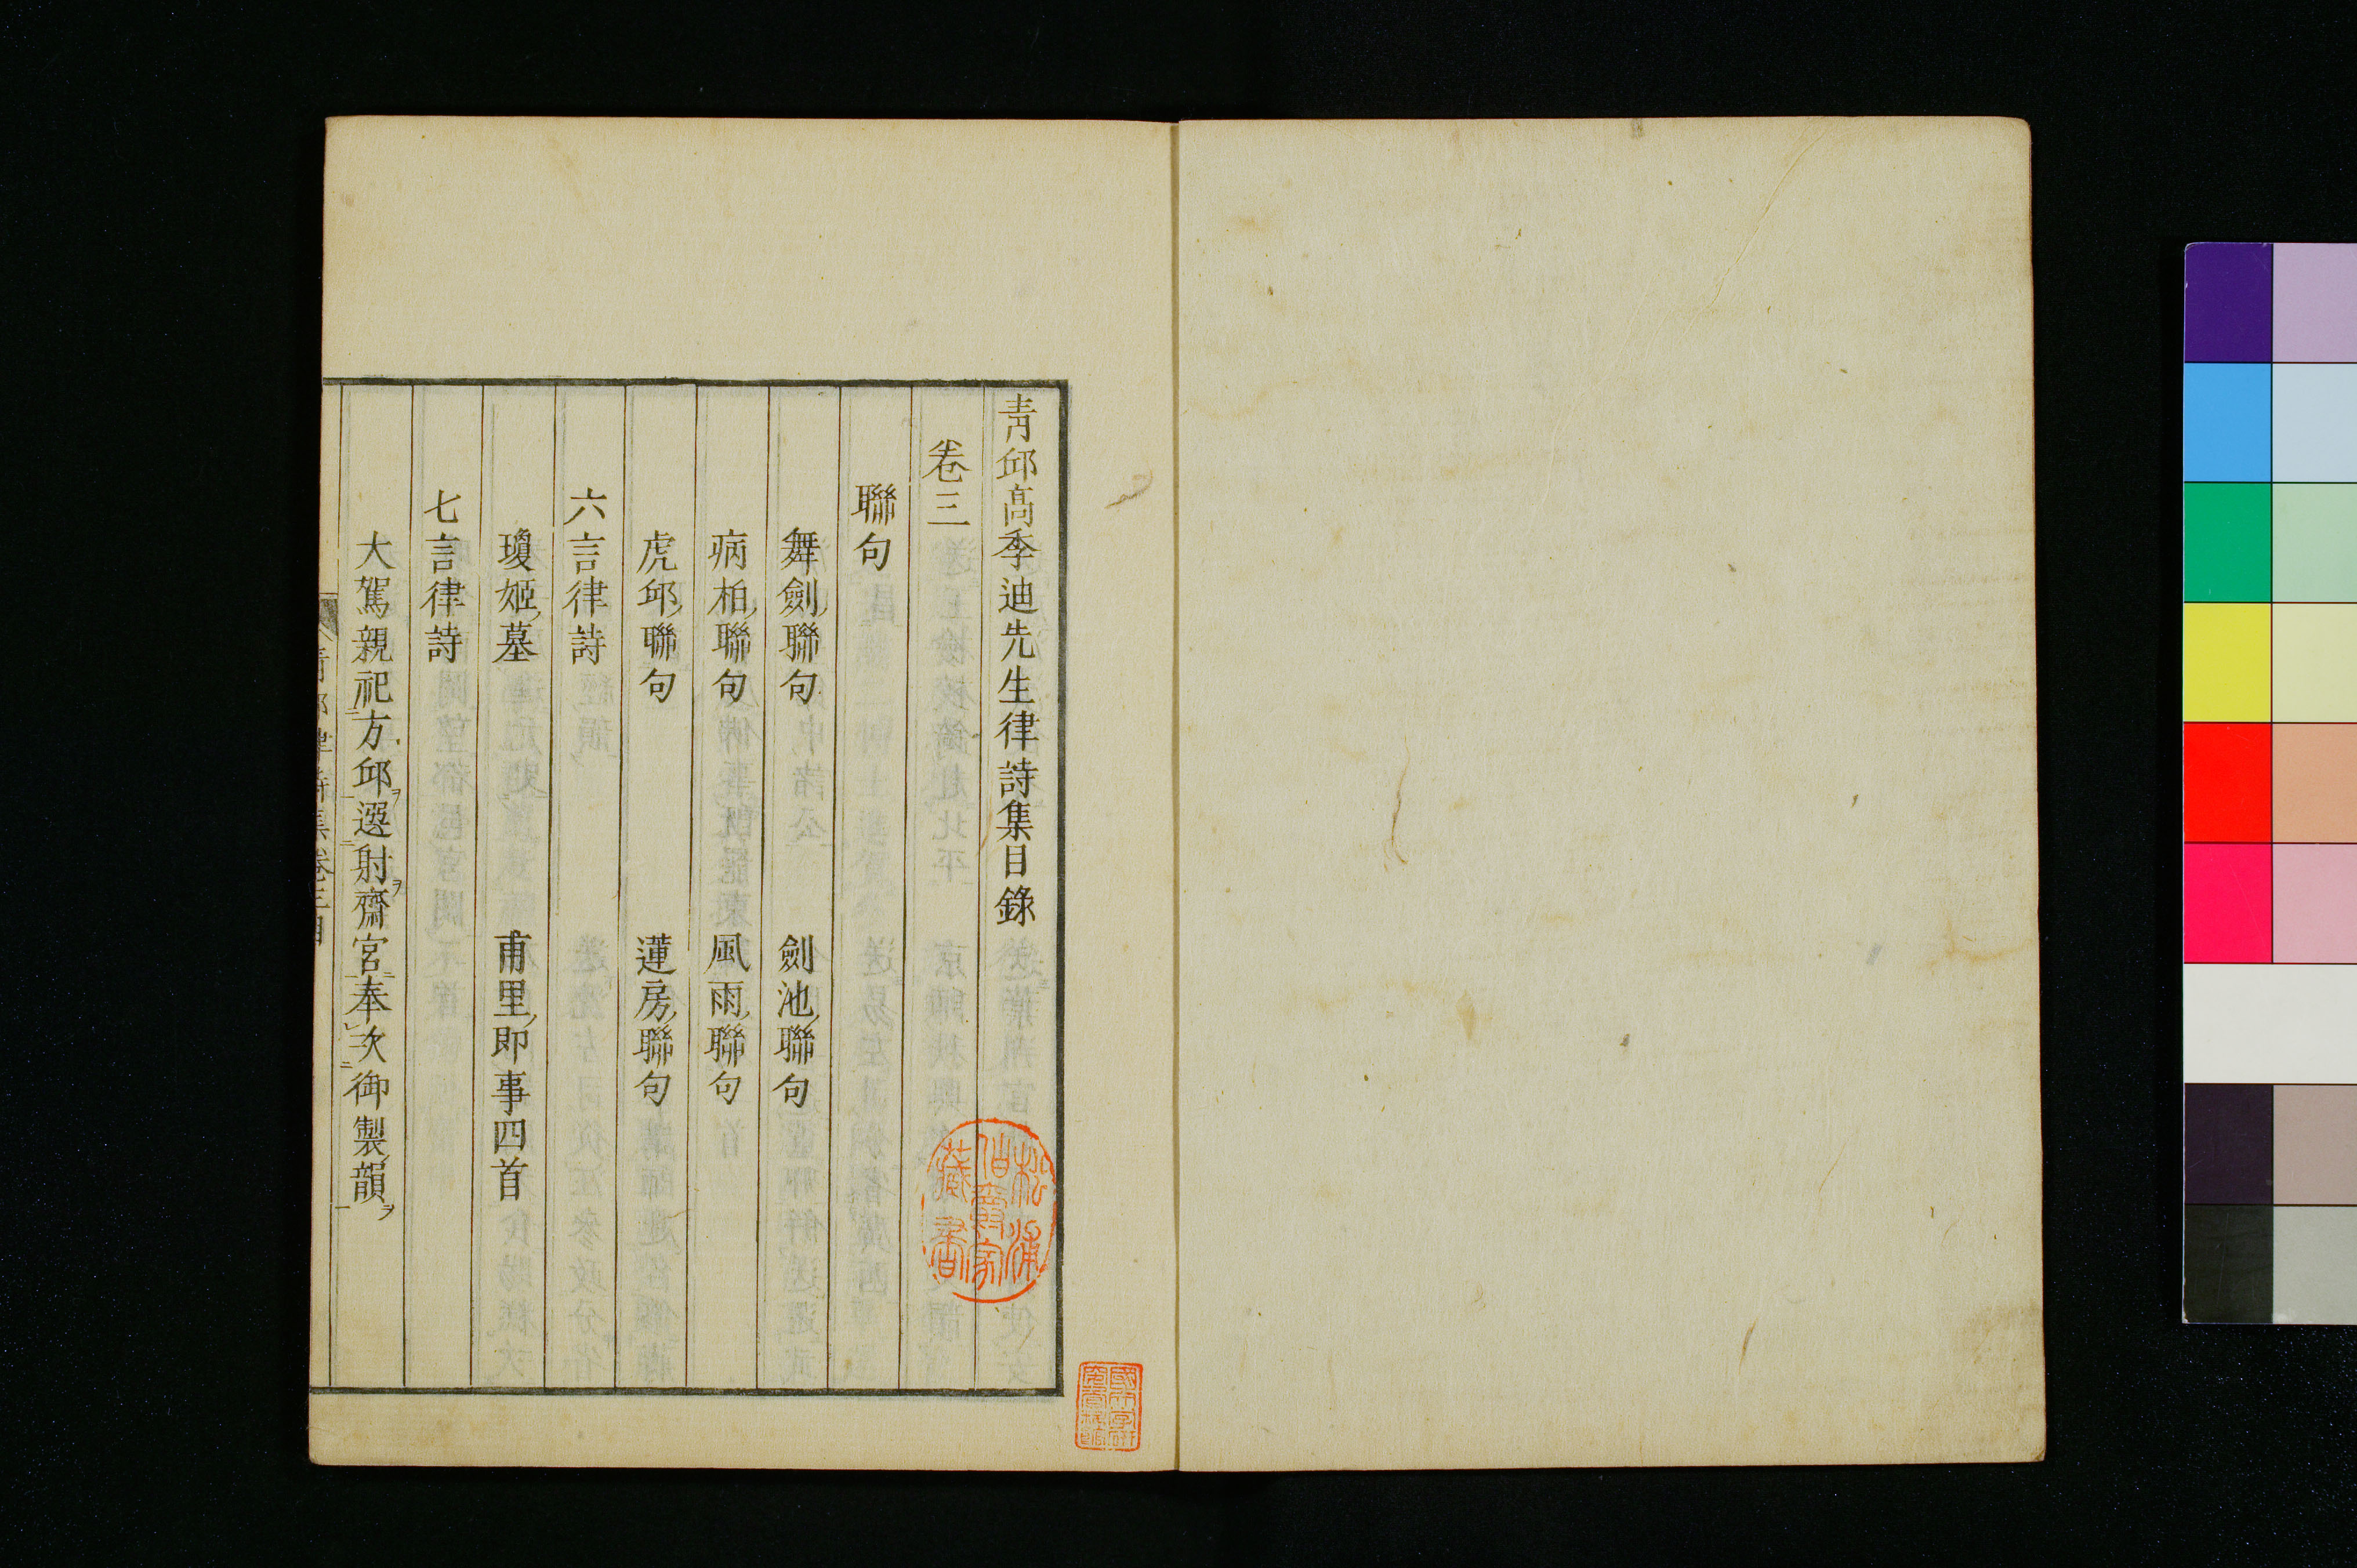 青邱高季迪先生律詩集目錄
卷三
聯句
舞劍聯句　劍池聯句
病柏聯句　風雨聯句
虎邱聯句　蓮房聯句
六言律詩
瓊姬墓　甫里即事四首
七言律詩
大駕親祀方邱選射齋宮奉次御製韻
青邱律詩集卷三目
松浦
家
藏書